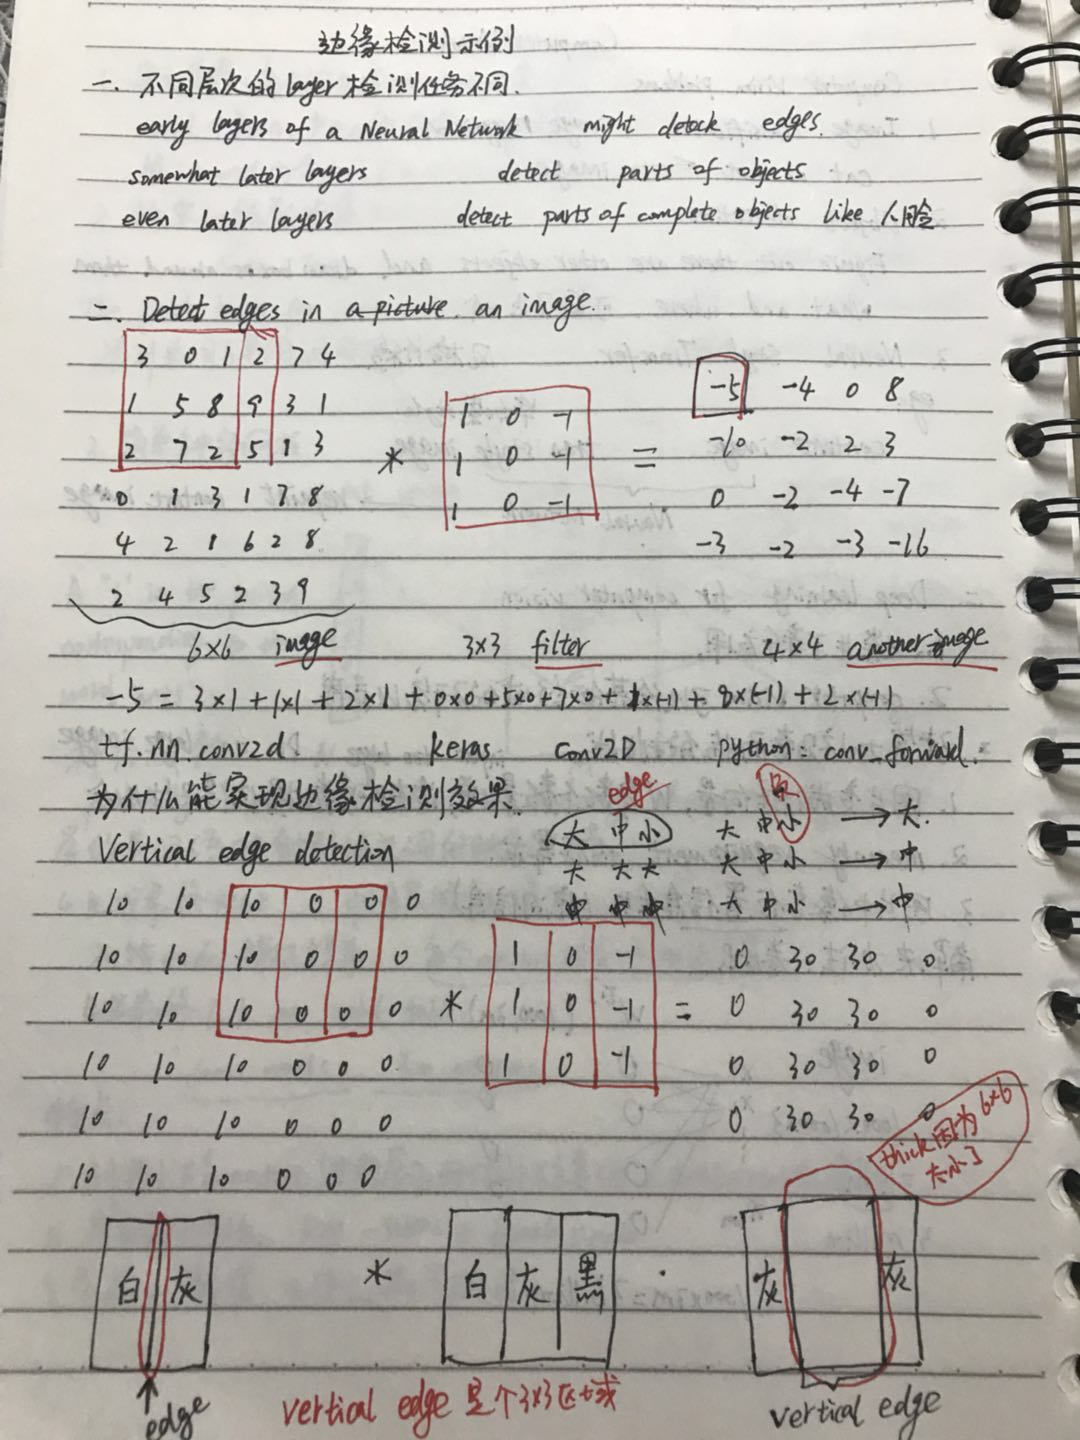 边缘检测示例
一. 不同层次的layer检测任务不同.
early layers of a Neural Network might detack edges.
somewhat later layers detect parts of objects
even later layers detect parts of complete objects like 人脸
二. Detect edges in a picture. an image.
3 0 1 2 7 4
1 5 8 9 3 1
2 7 2 5 1 3
0 1 3 1 7 8
4 2 1 6 2 8
2 4 5 2 3 9
*
1 0 -1
1 0 -1
1 0 -1
=
-5 -4 0 8
-10 -2 2 3
0 -2 -4 -7
-3 -2 -3 -16
6×6 image 3×3 filter 4×4 another image
-5 = 3×1 + 1×1 + 2×1 + 0×0 + 5×0 + 7×0 + 1×(-1) + 8×(-1) + 2×(-1)
tf.nn.conv2d. keras Conv2D python: conv_forward.
为什么能实现边缘检测效果.
Vertical edge detection
edge
大 中 小
大 大 大
中 中 中
大 中 小 → 大.
大 中 小 → 中
大 中 小 → 中
10 10 10 0 0 0
10 10 10 0 0 0
10 10 10 0 0 0
10 10 10 0 0 0
10 10 10 0 0 0
10 10 10 0 0 0
*
1 0 -1
1 0 -1
1 0 -1
=
0 30 30 0
0 30 30 0
0 30 30 0
0 30 30 0
thick因为6×6
太小了
白 灰 * 白 灰 黑 灰 灰
edge
vertical edge 是个3×3区域
vertical edge